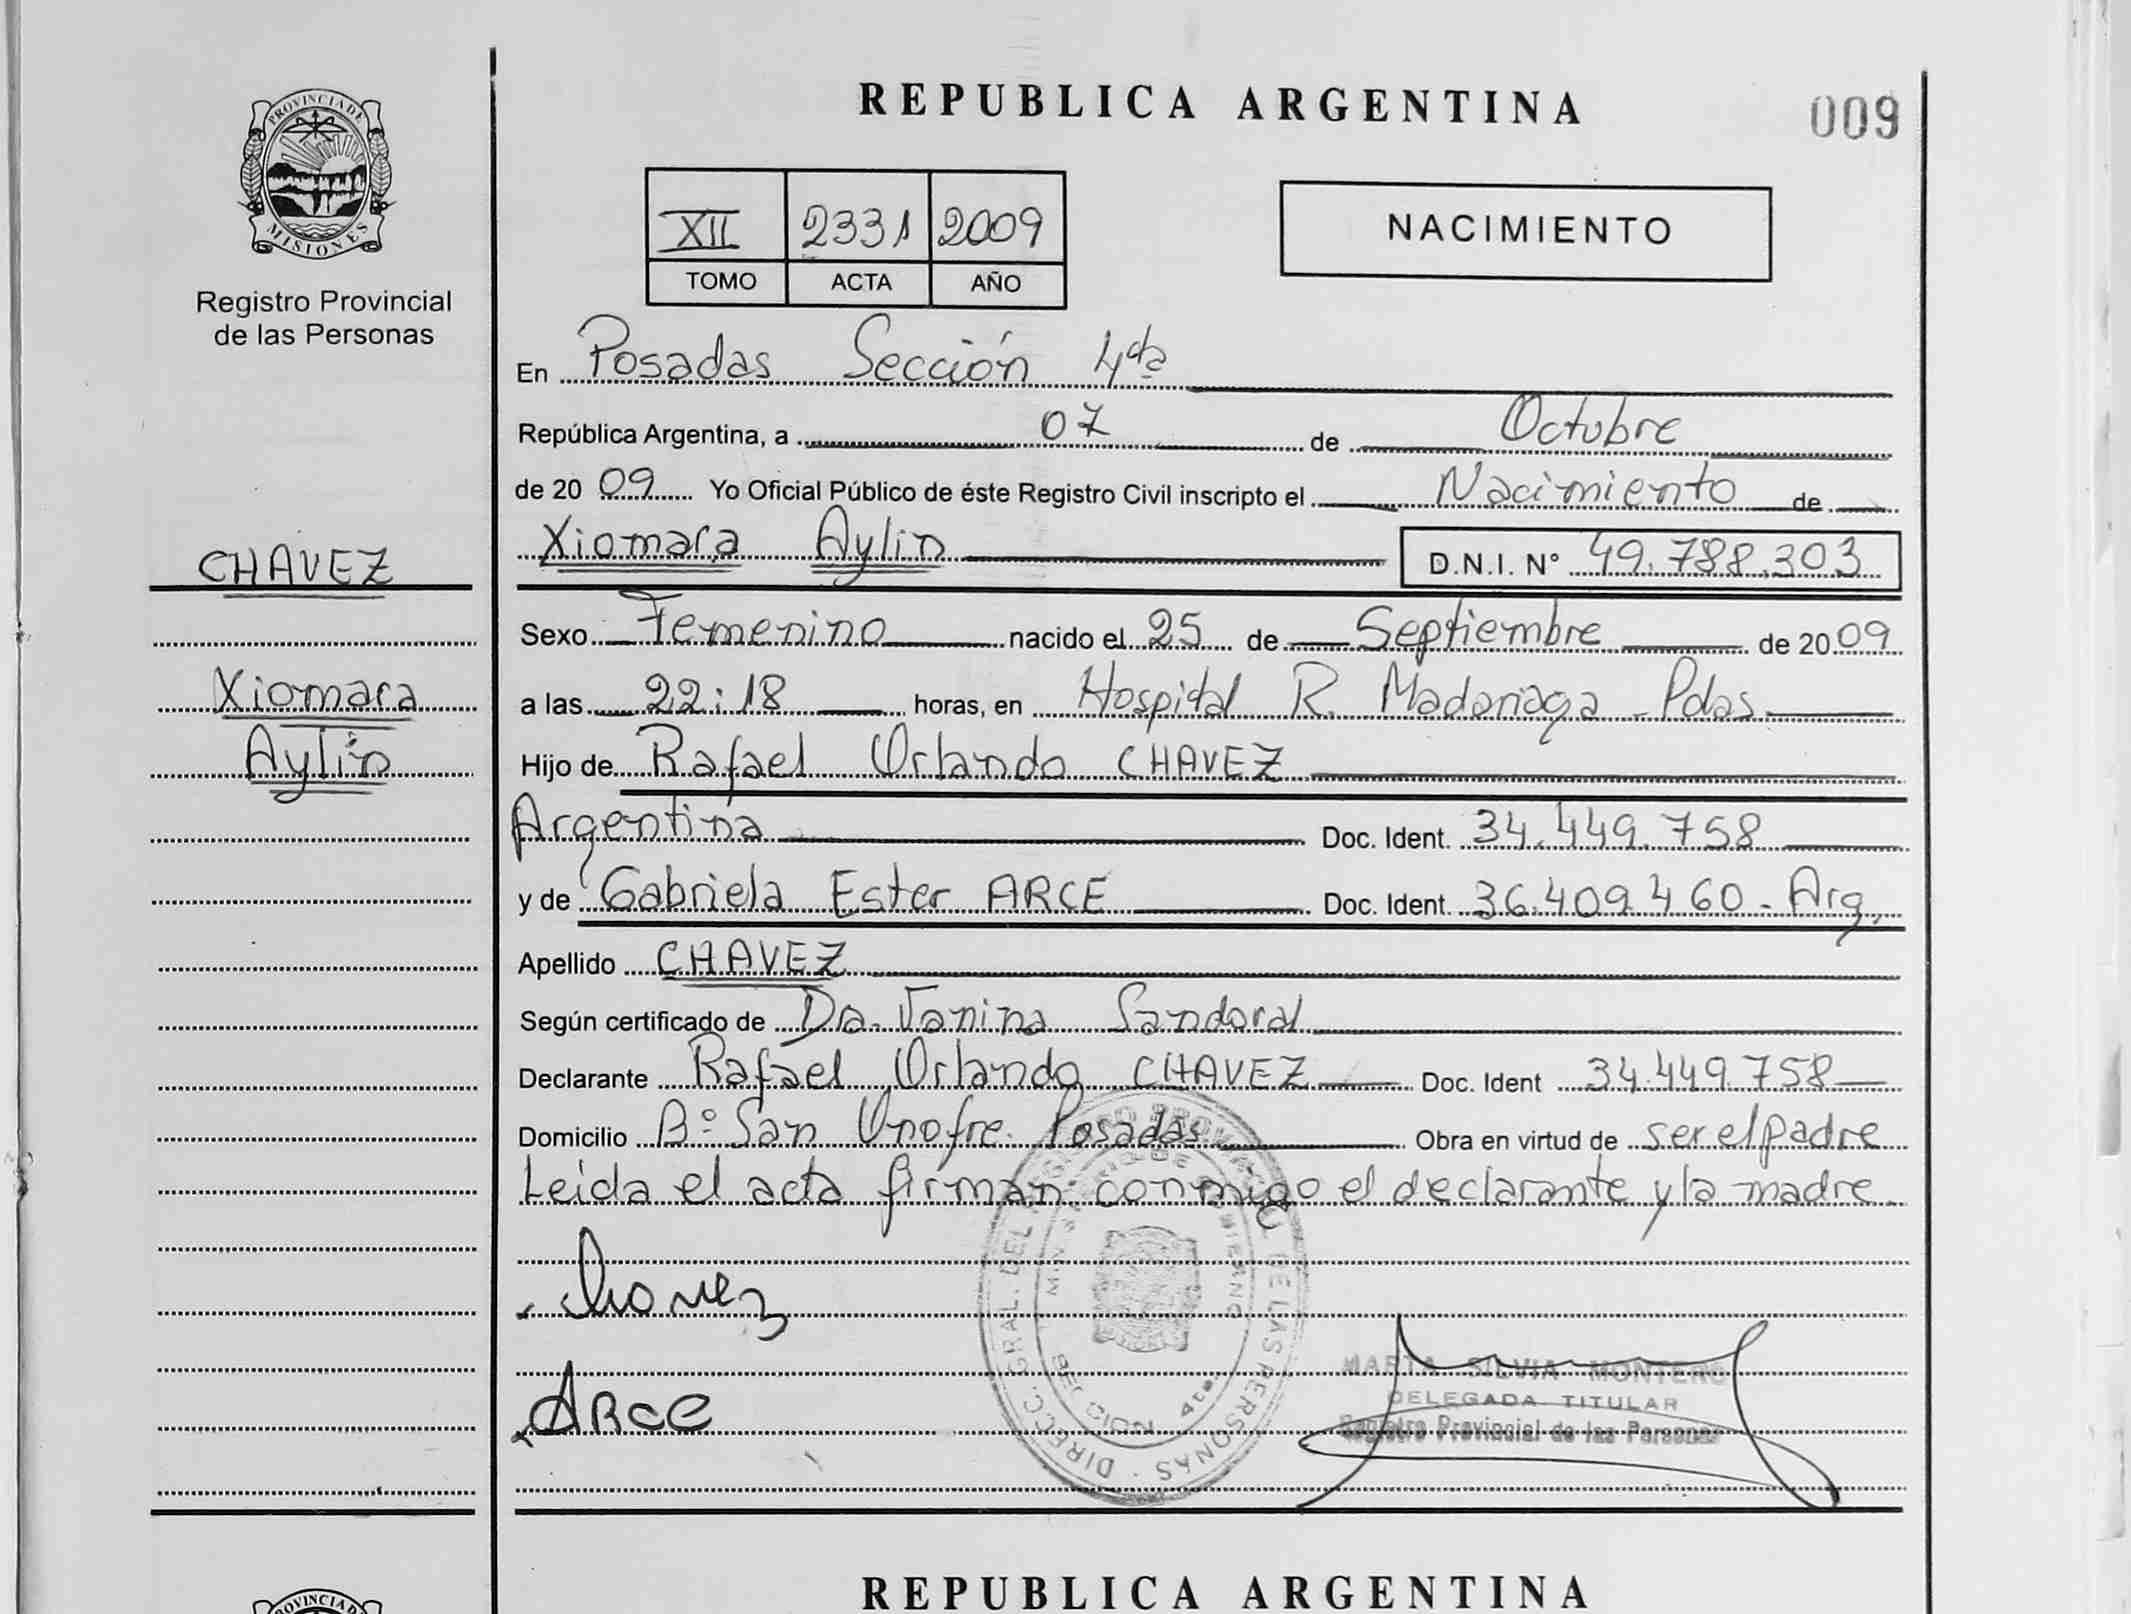 REPUBLICA ARGENTINA
009
PROVINCIA DE MISIONES
Registro Provincial
de las Personas
XII 2331 2009
TOMO ACTA AÑO
NACIMIENTO
En Posadas Sección 4ta
República Argentina, a 07 de Octubre
de 2009 Yo Oficial Público de éste Registro Civil inscripto el Nacimiento de
Xiomara Aylin D.N.I. N° 49.788.303
CHAVEZ
Xiomara
Aylin
Sexo Femenino nacido el 25 de Septiembre de 2009
a las 22:18 horas, en Hospital R. Madariaga - Pdas.
Hijo de Rafael Orlando CHAVEZ
Argentina Doc. Ident. 34.449.758
y de Gabriela Ester ARCE Doc. Ident. 36.409.460 - Arg.
Apellido CHAVEZ
Según certificado de Dra. Vanina Sandoval
Declarante Rafael Orlando CHAVEZ Doc. Ident 34.449.758
Domicilio B° San Onofre. Posadas Obra en virtud de ser el padre
Leida el acta firman conmigo el declarante y la madre.
Chavez
Arce
DIRECC. GRAL. DEL REGISTRO PROVINCIAL DE LAS PERSONAS
SECCION 4ta.
MARTA SILVIA MONTERO
DELEGADA TITULAR
Registro Provincial de las Personas
REPUBLICA ARGENTINA
PROVINCIA D